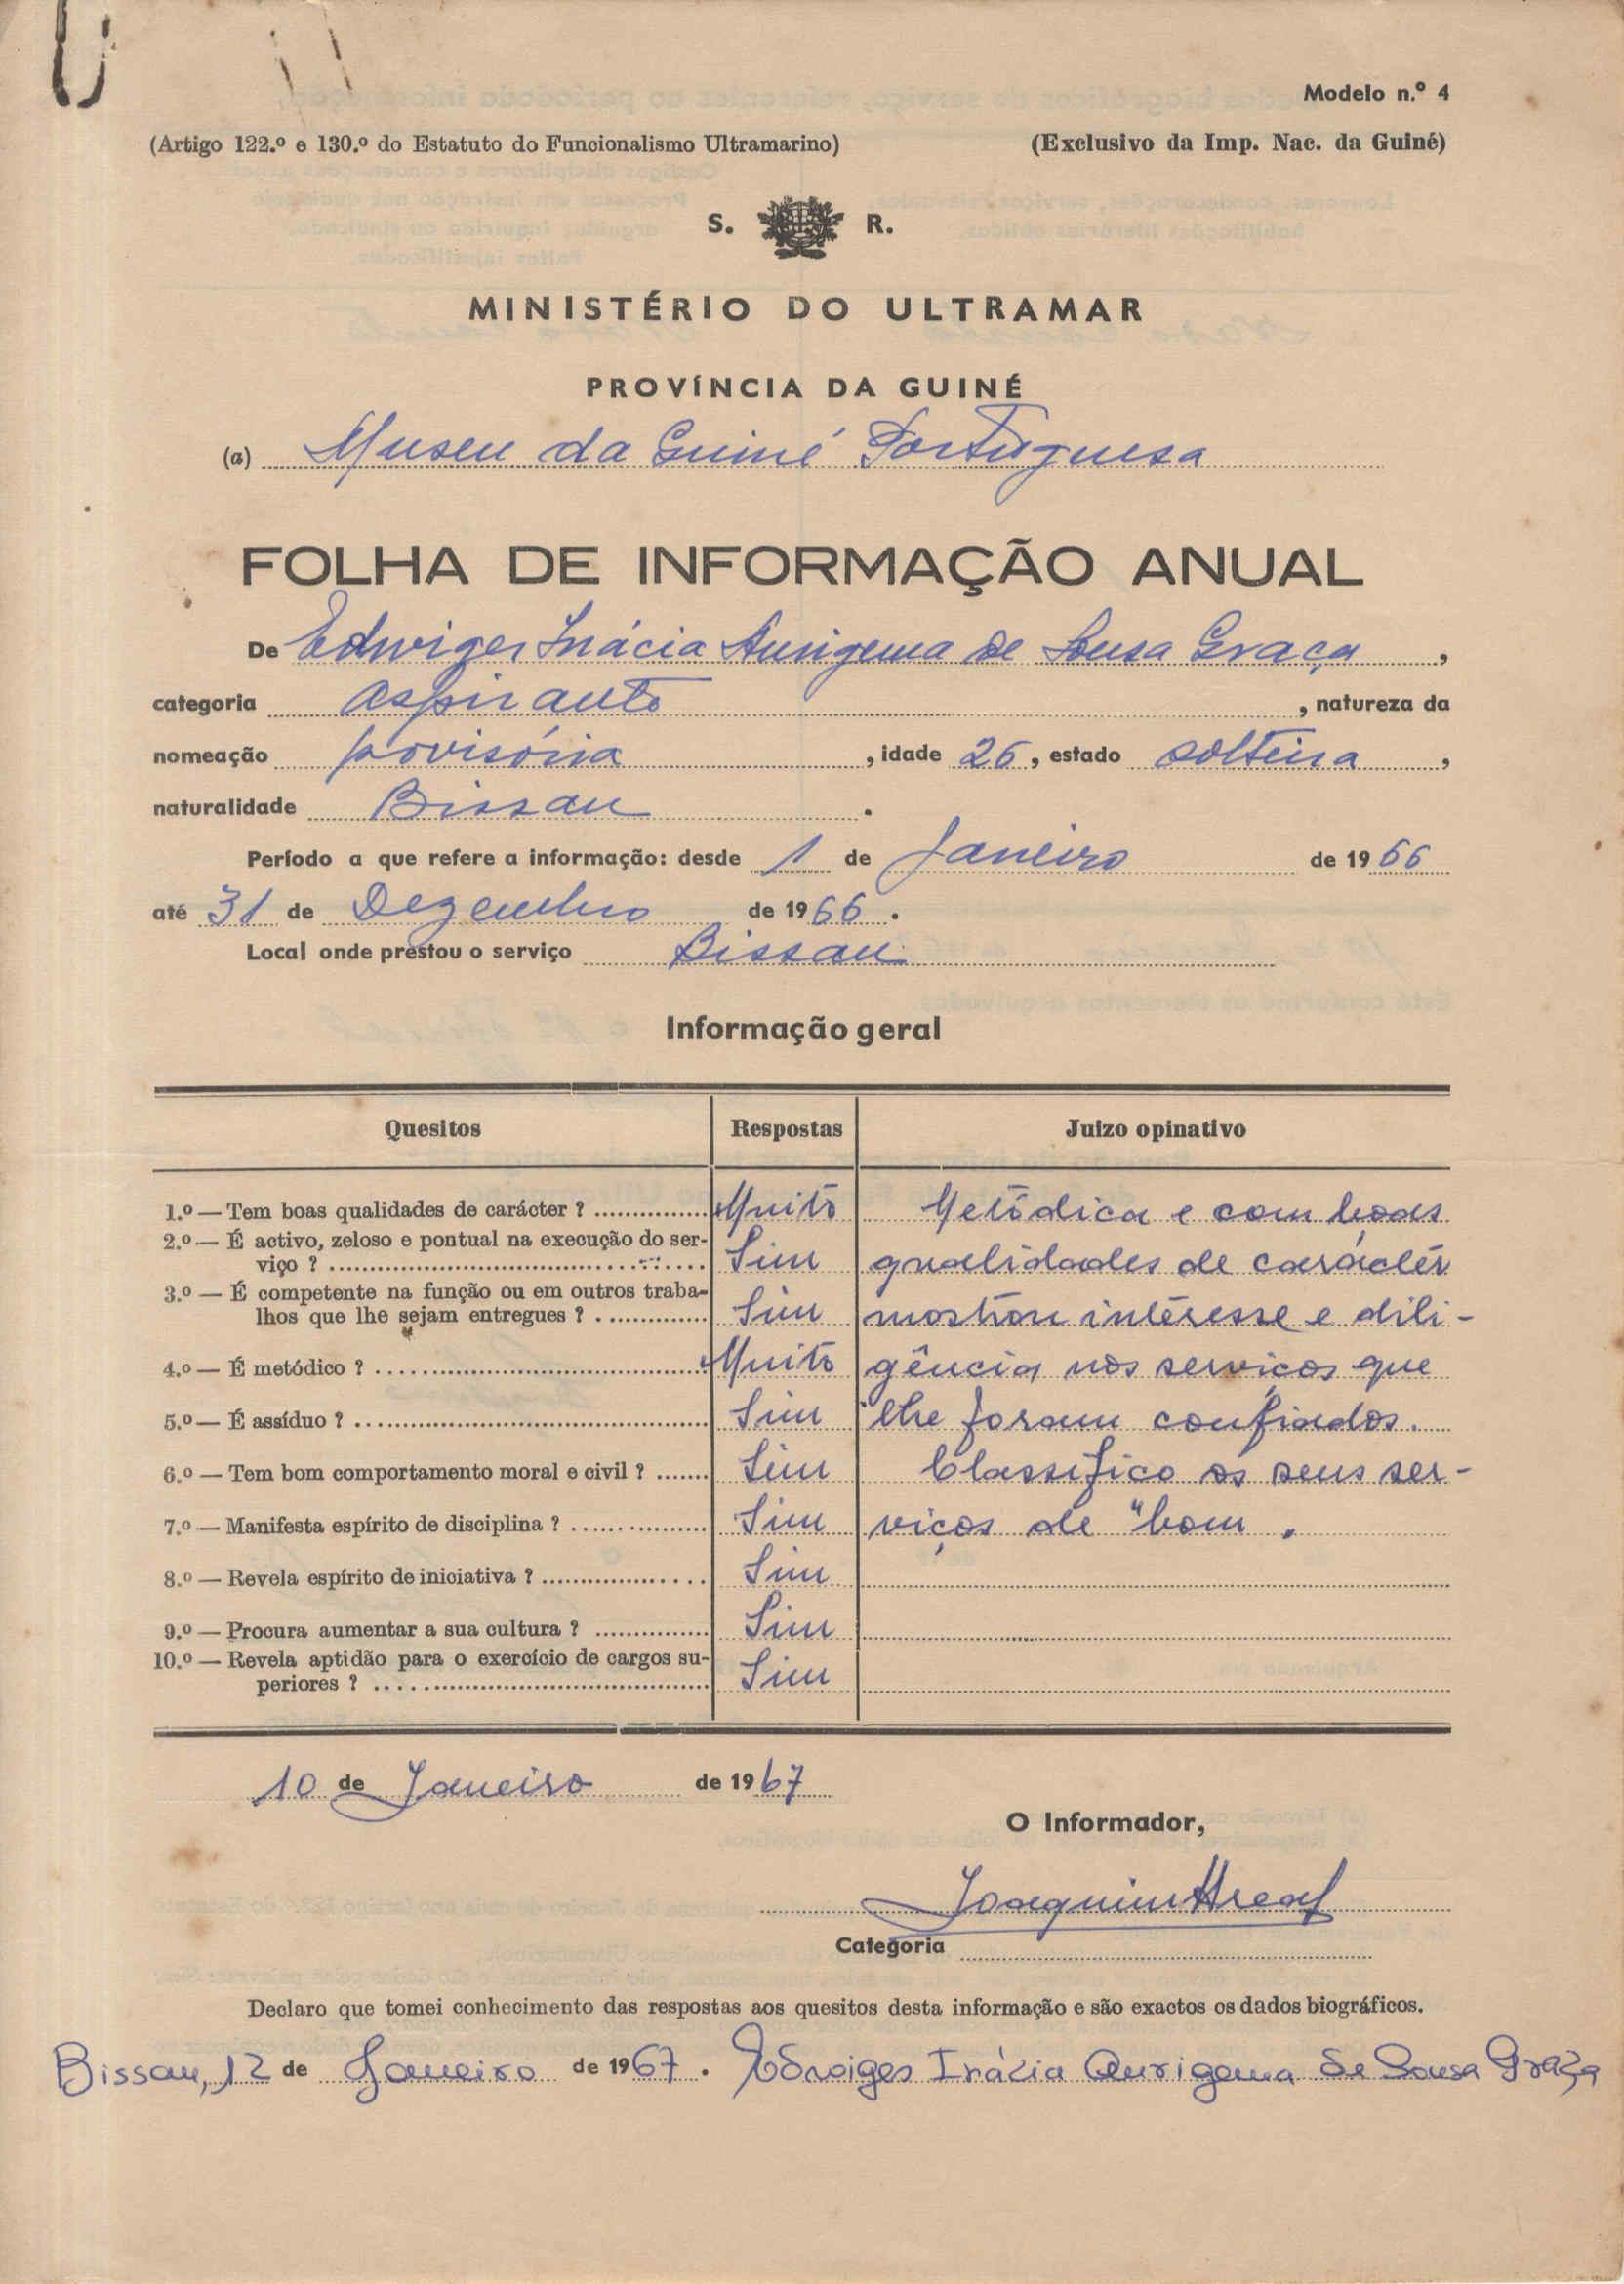 Modelo n.º 4
(Artigo 122.º e 130.º do Estatuto do Funcionalismo Ultramarino) (Exclusivo da Imp. Nac. da Guiné)
S. R.
MINISTÉRIO DO ULTRAMAR
PROVÍNCIA DA GUINÉ
(a) Museu da Guiné Portuguesa
FOLHA DE INFORMAÇÃO ANUAL
De Edwiges Inácia Aurigema de Sousa Graça,
categoria aspirante, natureza da
nomeação provisória, idade 26, estado solteira,
naturalidade Bissau.
Período a que refere a informação: desde 1 de Janeiro de 1966
até 31 de Dezembro de 1966.
Local onde prestou o serviço Bissau.
Informação geral
Quesitos Respostas Juizo opinativo
1.º — Tem boas qualidades de carácter ? Muito Metódica e com boas
2.º — É activo, zeloso e pontual na execução do ser-
viço ? Sim qualidades de carácter
3.º — É competente na função ou em outros traba-
lhos que lhe sejam entregues ? Sim mostrou interesse e dili-
4.º — É metódico ? Muito gência nos serviços que
5.º — É assíduo ? Sim lhe foram confiados.
6.º — Tem bom comportamento moral e civil ? Sim Classifico os seus ser-
7.º — Manifesta espírito de disciplina ? Sim viços de "bom".
8.º — Revela espírito de iniciativa ? Sim
9.º — Procura aumentar a sua cultura ? Sim
10.º — Revela aptidão para o exercício de cargos su-
periores ? Sim
10 de Janeiro de 1967
O Informador,
Joaquim Areal
Categoria
Declaro que tomei conhecimento das respostas aos quesitos desta informação e são exactos os dados biográficos.
Bissau, 12 de Janeiro de 1967. Edwiges Inácia Aurigema de Sousa Graça